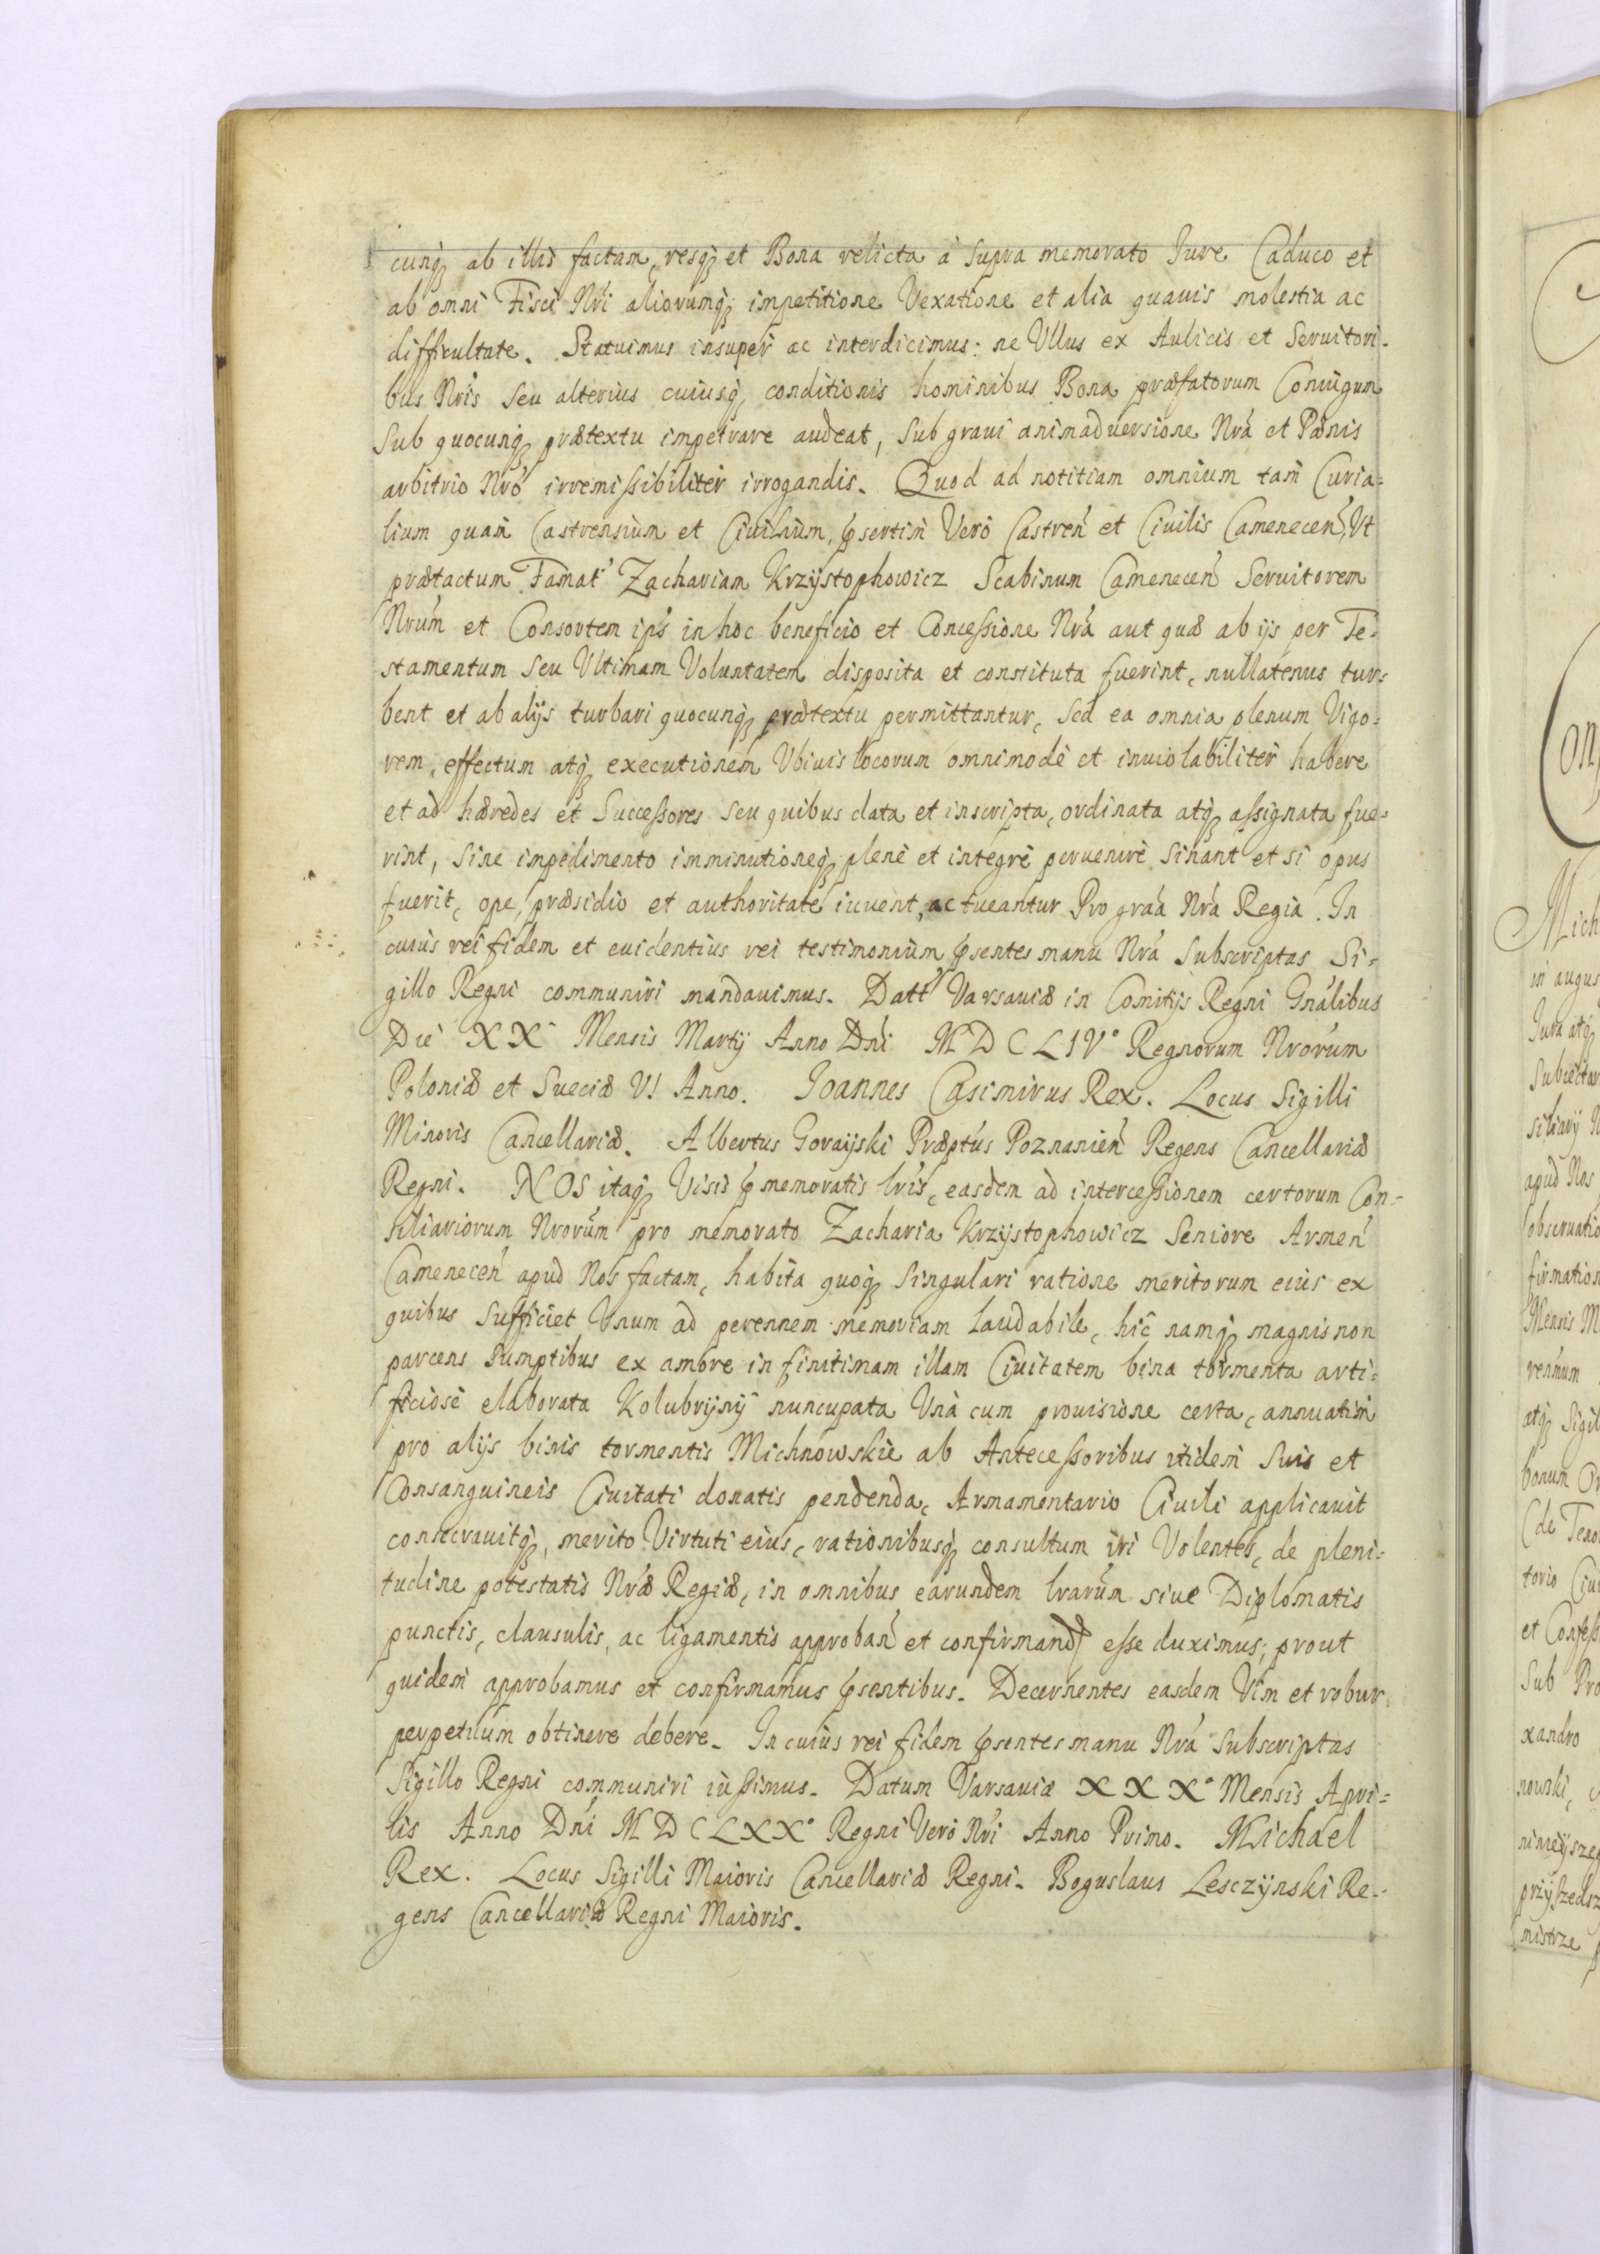 cunq; ab illis factam, resq; et Bona relicta à supra memorato Iure Caduco et
ab omni Fisci Nri aliorumq; impetitione Vexatione et alia quauis molestia ac
difficultate. Statuimus insuper ac interdicimus: ne Vllus ex Aulicis et Seruitori-
bus Nris seu alterius cuiusq; conditionis hominibus Bona præfatorum Coniugum
sub quocunq; prætextu impetrare audeat, sub graui animadversione Nrâ et Pœnis
arbitrio Nrô irremissibiliter irrogandis. Quod ad notitiam omnium tam Curia=
lium quam Castrensium et Ciuilium, psertim Vero Castren et Ciuilis Camenecen, Vt
prætactum Famat Zachariam Krzystophowicz Scabinum Camenecen Seruitorem
Nrum et Consortem ips in hoc beneficio et Concessione Nrâ aut quæ ab ijs per Te=
stamentum seu Vltimam Voluntatem disposita et constituta fuerint, nullatenus tur=
bent et ab alijs turbari quocunq; prætextu permittantur, sed ea omnia plenum Vigo=
rem, effectum atq; executionem Vbiuis locorum omnimodè et inuiolabiliter habere
et ad hæredes et Successores seu quibus data et inscripta, ordinata atq; assignata fue=
rint, sine impedimento imminutioneq; plenè et integrè peruenire sinant et si opus
fuerit, ope, præsidio et authoritate iuuent, ac tueantur Pro graâ Nrâ Regia. In
cuius rei fidem et euidentius rei testimonium psentes manu Nrâ Subscriptas Si=
gillo Regni communiri mandauimus. Datt Varsauiæ in Comitijs Regni Gnalibus
Die XX Mensis Martij Anno Dni MDCLIV° Regnorum Nrorum
Poloniæ et Sueciæ VI Anno. Ioannes Casimirus Rex. Locus Sigilli
Minoris Cancellariæ. Albertus Gorayski Præptus Poznanien Regens Cancellariæ
Regni. NOS itaq; Visis pmemoratis lris, easdem ad intercessionem certorum Con=
siliariorum Nrorum pro memorato Zacharia Krzystophowicz Seniore Armen
Camenecen apud Nos factam, habita quoq; singulari ratione meritorum eius ex
quibus sufficiet Vnum ad perennem memoriam laudabile, hic namq; magnis non
parcens sumptibus ex amore in finitimam illam Ciuitatem bina tormenta arti=
ficiosè elaborata Kolubryny nuncupata Vnà cum prouisione certa, annuatim
pro alijs binis tormentis Michnowskie ab Antecessoribus itidem suis et
Consanguineis Ciuitati donatis pendenda, Armamentario Ciuili applicauit
consecrauitq;, merito Virtuti eius, rationibusq; consultum iri Volentes, de pleni=
tudine potestatis Nræ Regiæ, in omnibus earundem lrarum siue Diplomatis
punctis, clausulis, ac ligamentis approban et confirmand esse duximus; prout
quidem approbamus et confirmamus psentibus. Decernentes easdem Vim et robur
perpetuum obtinere debere. In cuius rei fidem psentes manu Nrâ subscriptas
Sigillo Regni communiri iussimus. Datum Varsauiæ XXX° Mensis Apri=
lis Anno Dni MDCLXX° Regni Vero Nri Anno Primo. Michael
Rex. Locus Sigilli Maioris Cancellariæ Regni. Boguslaus Lesczynski Re-
gens Cancellariæ Regni Maioris.